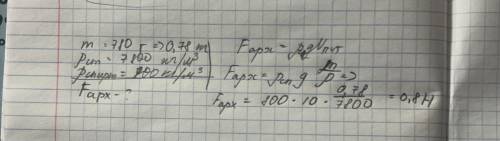 m = 780 г => 0,78 т
ρст = 7800 кг/м³
ρспирт = 800 кг/м³
Fарх - ?
Fарх = ρgVпчт
Fарх = ρсп g m/ρ =>
Fарх = 800 · 10 · 0,78/7800 = 0,8 Н